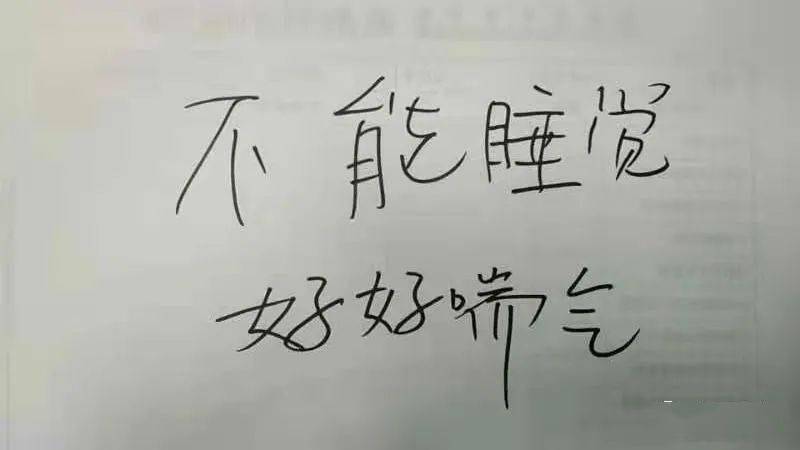 不能睡觉
好好喘气